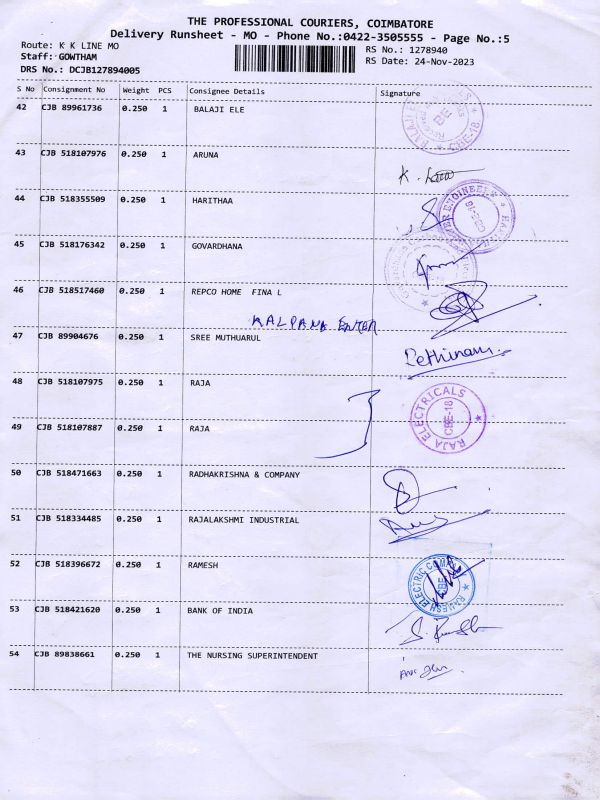 THE PROFESSIONAL COURIERS, COIMBATORE
Delivery Runsheet - MO - Phone No.:0422-3505555 - Page No.:5
Route: K K LINE MO
RS No.: 1278940
Staff: GOWTHAM
RS Date: 24-Nov-2023
DRS No.: DCJB127894005
S No Consignment No Weight PCS Consignee Details Signature
42 CJB 89961736 0.250 1 BALAJI ELE
43 CJB 518107976 0.250 1 ARUNA
44 CJB 518355509 0.250 1 HARITHAA
45 CJB 518176342 0.250 1 GOVARDHANA
46 CJB 518517460 0.250 1 REPCO HOME FINA L
KALPANA ENTER
47 CJB 89904676 0.250 1 SREE MUTHUARUL
48 CJB 518107975 0.250 1 RAJA
RAJA ELECTRICALS
CBE-18
49 CJB 518107887 0.250 1 RAJA
50 CJB 518471663 0.250 1 RADHAKRISHNA & COMPANY
51 CJB 518334485 0.250 1 RAJALAKSHMI INDUSTRIAL
52 CJB 518396672 0.250 1 RAMESH
RAMESH ELECTRIC COMPANY
53 CJB 518421620 0.250 1 BANK OF INDIA
54 CJB 89838661 0.250 1 THE NURSING SUPERINTENDENT